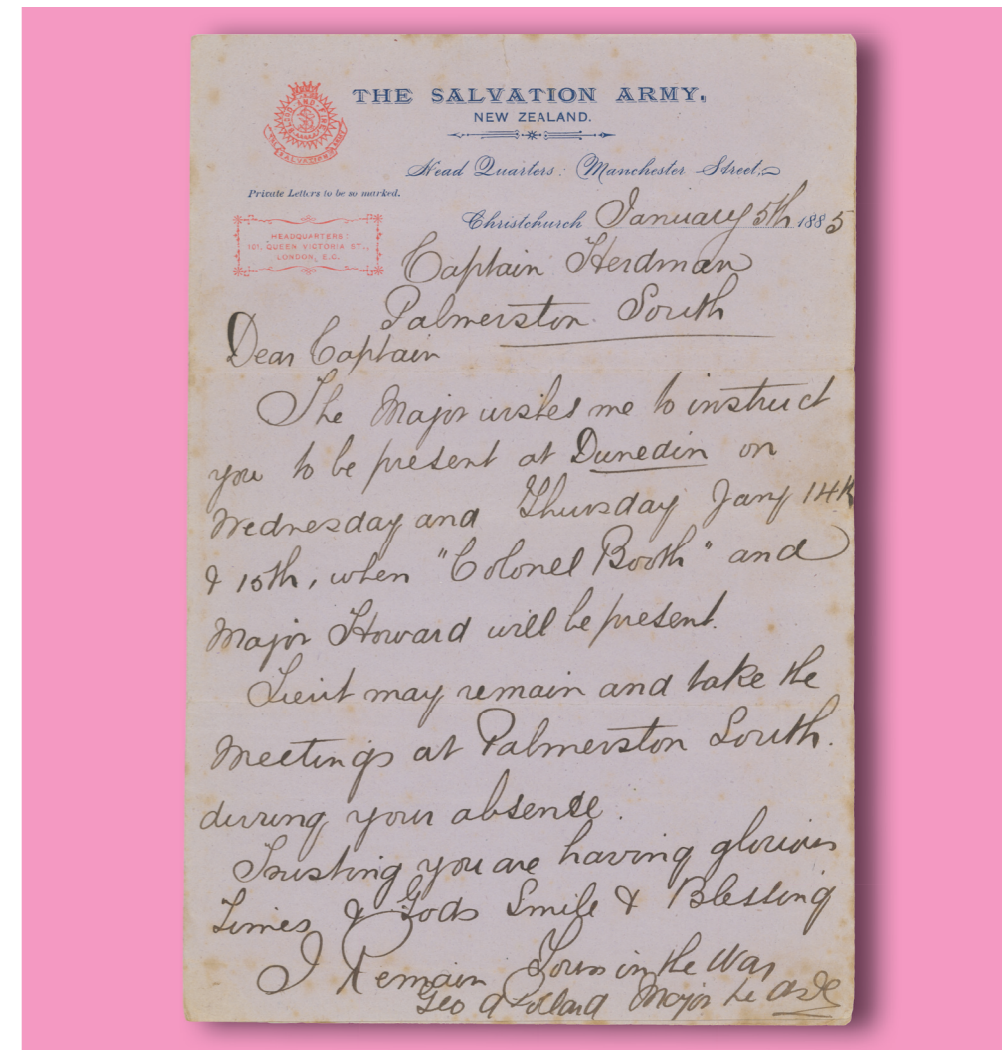 THE SALVATION ARMY,
NEW ZEALAND.
BLOOD AND FIRE
THE SALVATION ARMY
Head Quarters: Manchester Street,
Private Letters to be so marked.
Christchurch January 5th 1885
HEADQUARTERS:
101, QUEEN VICTORIA ST.,
LONDON, E.C.
Captain Herdman
Palmerston South
Dear Captain
The Major wishes me to instruct
you to be present at Dunedin on
Wednesday and Thursday Jany 14th
& 15th, when "Colonel Booth" and
Major Howard will be present.
Lieut may remain and take the
Meetings at Palmerston South.
during your absense.
Trusting you are having glorious
Times & Gods Smile & Blessing
I Remain Yours in the War
Geo A Pollard Major